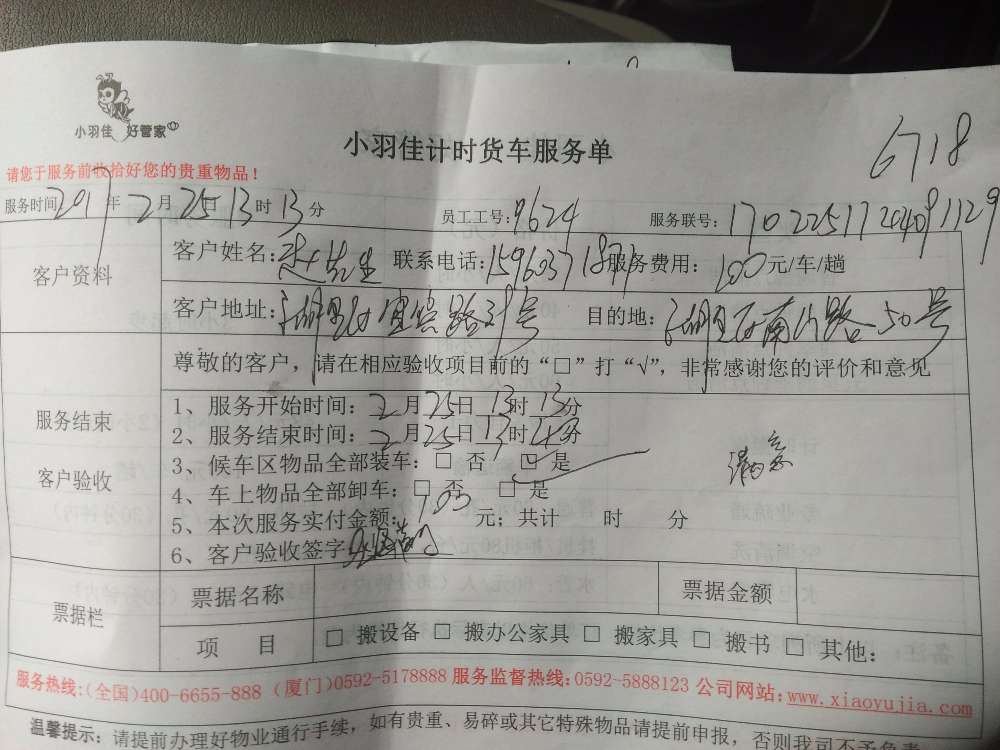 小羽佳 好管家
小羽佳计时货车服务单
6718
请您于服务前收拾好您的贵重物品！
服务时间 2017年2月25日13时13分 员工工号：9624 服务联号：
客户资料
客户姓名： 先生 联系电话： 服务费用：100元/车/趟
客户地址： 湖里区宜宾路 号 目的地： 湖里区南山路 50号
尊敬的客户，请在相应验收项目前的“□”打“√”，非常感谢您的评价和意见
服务结束
客户验收
1、服务开始时间：2月25日13时13分
2、服务结束时间：2月25日13时 分
3、候车区物品全部装车：□ 否 □ 是
满意
4、车上物品全部卸车：□ 否 □ 是
5、本次服务实付金额：100元；共计 时 分
6、客户验收签字
票据栏
票据名称 票据金额
项 目 □ 搬设备 □ 搬办公家具 □ 搬家具 □ 搬书 □ 其他：
服务热线：(全国)400-6655-888 (厦门)0592-5178888 服务监督热线：0592-5888123 公司网站：www.xiaoyujia.com
温馨提示：请提前办理好物业通行手续，如有贵重、易碎或其它特殊物品请提前申报，否则我司不予负责